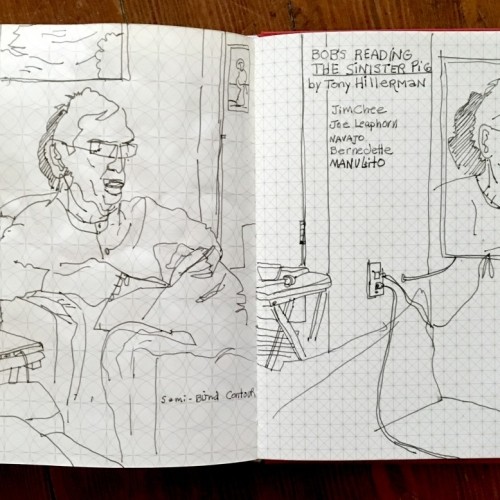 Semi-Blind Contour
BOB'S READING
THE SINISTER PIG
by Tony Hillerman
Jim Chee
Joe Leaphorn
NAVAJO
Bernedette
MANULITO